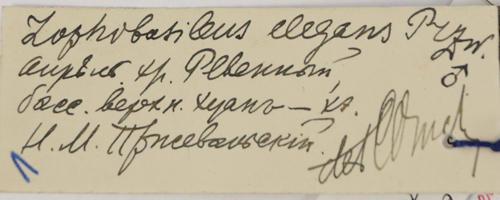 Lophobasileus elegans Przw. ♂
Апрѣль. хр. Ревенный,
басс. верхн. Хуанъ-хэ.
Н. М. Пржевальскій.
det.
1